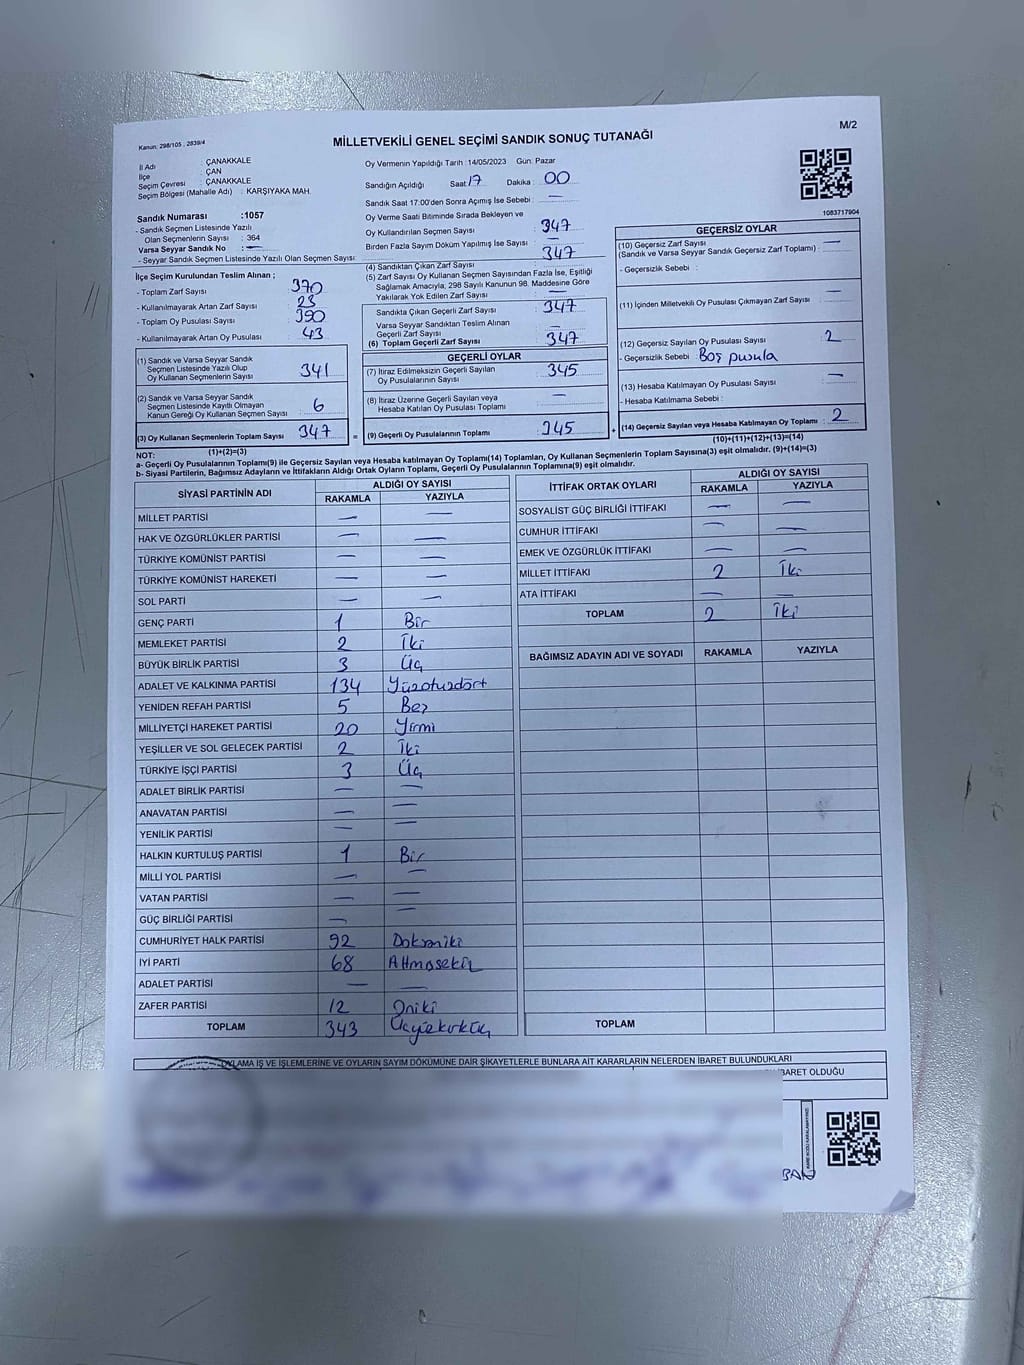 Kanun: 298/105 , 2839/4
MİLLETVEKİLİ GENEL SEÇİMİ SANDIK SONUÇ TUTANAĞI
M/2
İl Adı : ÇANAKKALE
İlçe : ÇAN
Seçim Çevresi : ÇANAKKALE
Seçim Bölgesi (Mahalle Adı) : KARŞIYAKA MAH.
Sandık Numarası :1057
- Sandık Seçmen Listesinde Yazılı
Olan Seçmenlerin Sayısı : 364
Varsa Seyyar Sandık No : —
- Seyyar Sandık Seçmen Listesinde Yazılı Olan Seçmen Sayısı:
İlçe Seçim Kurulundan Teslim Alınan ;
- Toplam Zarf Sayısı 370
- Kullanılmayarak Artan Zarf Sayısı 23
- Toplam Oy Pusulası Sayısı 390
- Kullanılmayarak Artan Oy Pusulası 43
(1) Sandık ve Varsa Seyyar Sandık
Seçmen Listesinde Yazılı Olup
Oy Kullanan Seçmenlerin Sayısı 341
(2) Sandık ve Varsa Seyyar Sandık
Seçmen Listesinde Kayıtlı Olmayan
Kanun Gereği Oy Kullanan Seçmen Sayısı 6
(3) Oy Kullanan Seçmenlerin Toplam Sayısı 347
(1)+(2)=(3)
Oy Vermenin Yapıldığı Tarih :14/05/2023 Gün: Pazar
Sandığın Açıldığı Saat 17 Dakika : 00
Sandık Saat 17:00'den Sonra Açılmış İse Sebebi : —
Oy Verme Saati Bitiminde Sırada Bekleyen ve
Oy Kullandırılan Seçmen Sayısı : 347
Birden Fazla Sayım Döküm Yapılmış İse Sayısı : —
(4) Sandıktan Çıkan Zarf Sayısı 347
(5) Zarf Sayısı Oy Kullanan Seçmen Sayısından Fazla İse, Eşitliği
Sağlamak Amacıyla, 298 Sayılı Kanunun 98. Maddesine Göre
Yakılarak Yok Edilen Zarf Sayısı —
Sandıkta Çıkan Geçerli Zarf Sayısı 347
Varsa Seyyar Sandıktan Teslim Alınan
Geçerli Zarf Sayısı —
(6) Toplam Geçerli Zarf Sayısı 347
GEÇERLİ OYLAR
(7) İtiraz Edilmeksizin Geçerli Sayılan
Oy Pusulalarının Sayısı 345
(8) İtiraz Üzerine Geçerli Sayılan veya
Hesaba Katılan Oy Pusulası Toplamı —
= (9) Geçerli Oy Pusulalarının Toplamı 345 +
1083717904
GEÇERSİZ OYLAR
(10) Geçersiz Zarf Sayısı —
(Sandık ve Varsa Seyyar Sandık Geçersiz Zarf Toplamı) :
- Geçersizlik Sebebi :
(11) İçinden Milletvekili Oy Pusulası Çıkmayan Zarf Sayısı —
(12) Geçersiz Sayılan Oy Pusulası Sayısı 2
- Geçersizlik Sebebi : Boş pusula
(13) Hesaba Katılmayan Oy Pusulası Sayısı —
- Hesaba Katılmama Sebebi :
(14) Geçersiz Sayılan veya Hesaba Katılmayan Oy Toplamı 2
(10)+(11)+(12)+(13)=(14)
NOT:
a- Geçerli Oy Pusulalarının Toplamı(9) ile Geçersiz Sayılan veya Hesaba katılmayan Oy Toplamı(14) Toplamları, Oy Kullanan Seçmenlerin Toplam Sayısına(3) eşit olmalıdır. (9)+(14)=(3)
b- Siyasi Partilerin, Bağımsız Adayların ve İttifakların Aldığı Ortak Oyların Toplamı, Geçerli Oy Pusulalarının Toplamına(9) eşit olmalıdır.
SİYASİ PARTİNİN ADI ALDIĞI OY SAYISI
RAKAMLA YAZIYLA
MİLLET PARTİSİ — —
HAK VE ÖZGÜRLÜKLER PARTİSİ — —
TÜRKİYE KOMÜNİST PARTİSİ — —
TÜRKİYE KOMÜNİST HAREKETİ — —
SOL PARTİ — —
GENÇ PARTİ 1 Bir
MEMLEKET PARTİSİ 2 İki
BÜYÜK BİRLİK PARTİSİ 3 Üç
ADALET VE KALKINMA PARTİSİ 134 Yüzotuzdört
YENİDEN REFAH PARTİSİ 5 Beş
MİLLİYETÇİ HAREKET PARTİSİ 20 Yirmi
YEŞİLLER VE SOL GELECEK PARTİSİ 2 İki
TÜRKİYE İŞÇİ PARTİSİ 3 Üç
ADALET BİRLİK PARTİSİ — —
ANAVATAN PARTİSİ — —
YENİLİK PARTİSİ — —
HALKIN KURTULUŞ PARTİSİ 1 Bir
MİLLİ YOL PARTİSİ — —
VATAN PARTİSİ — —
GÜÇ BİRLİĞİ PARTİSİ — —
CUMHURİYET HALK PARTİSİ 92 Doksaniki
İYİ PARTİ 68 Altmışsekiz
ADALET PARTİSİ — —
ZAFER PARTİSİ 12 Oniki
TOPLAM 343 Üçyüzkırküç
İTTİFAK ORTAK OYLARI ALDIĞI OY SAYISI
RAKAMLA YAZIYLA
SOSYALİST GÜÇ BİRLİĞİ İTTİFAKI — —
CUMHUR İTTİFAKI — —
EMEK VE ÖZGÜRLÜK İTTİFAKI — —
MİLLET İTTİFAKI 2 İki
ATA İTTİFAKI — —
TOPLAM 2 İki
BAĞIMSIZ ADAYIN ADI VE SOYADI RAKAMLA YAZIYLA
TOPLAM
OYLAMA İŞ VE İŞLEMLERİNE VE OYLARIN SAYIM DÖKÜMÜNE DAİR ŞİKAYETLERLE BUNLARA AİT KARARLARIN NELERDEN İBARET BULUNDUKLARI
İBARET OLDUĞU